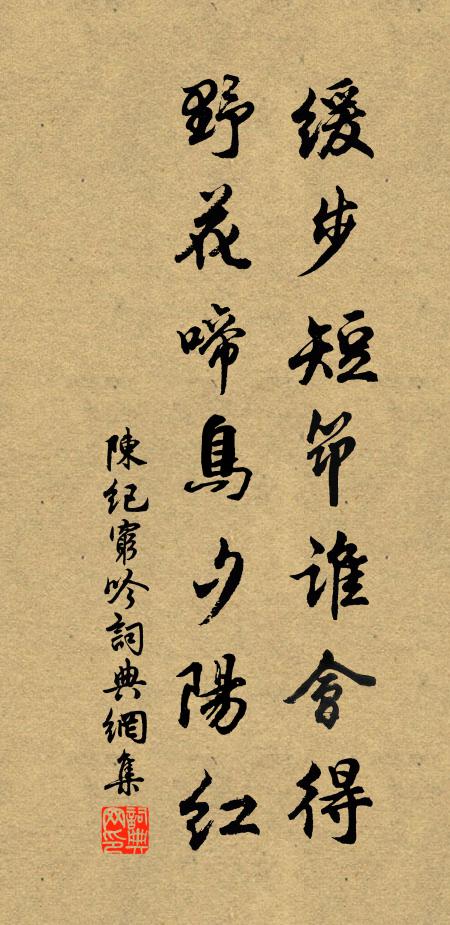 緩步短筇誰會得
野花啼鳥夕陽紅
陳紀窮吟詞典網集
詞典网印